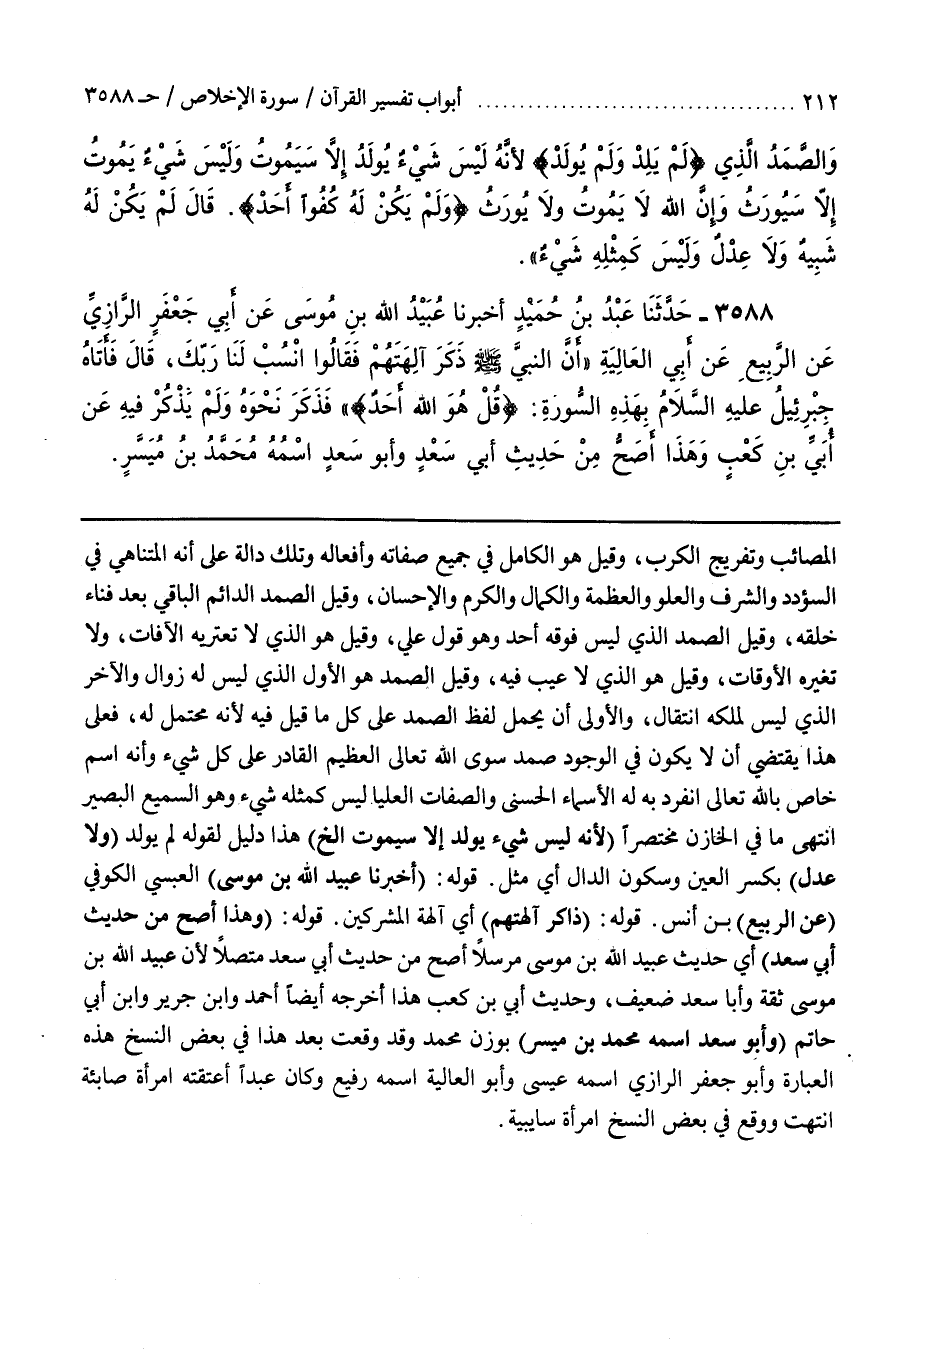 ٢١٢ ..................................... أبواب تفسير القرآن / سورة الإخلاص / حـ ٣٥٨٨
وَالصَّمَدُ الَّذِي ﴿لَمْ يَلِدْ وَلَمْ يُولَدْ﴾ لأنَّهُ لَيْسَ شَيْءٌ يُولَدُ إِلَّا سَيَمُوتُ وَلَيْسَ شَيْءٌ يَمُوتُ
إِلّا سَيُورَثُ وَإِنَّ الله لَا يَمُوتُ ولا يُورَثُ ﴿وَلَمْ يَكُنْ لَهُ كُفُواً أَحَدْ﴾. قَالَ لَمْ يَكُنْ لَهُ
شَبِيهٌ وَلَا عِدْلٌ وَلَيْسَ كَمِثْلِهِ شَيْءٌ».
٣٥٨٨ ـ حَدَّثَنَا عَبْدُ بنُ حُمَيْدٍ أخبرنا عُبَيْدُ الله بنِ مُوسَى عَن أَبِي جَعْفَرٍ الرَّازِيِّ
عَن الرَّبِيعِ عَن أَبِي العَالِيَةِ «أَنَّ النبيَّ ﷺ ذَكَرَ آلِهَتَهُمْ فَقَالُوا انْسُبْ لَنَا رَبّكَ، قَالَ فَأَتَاهُ
جِبْرِئيلُ عليهِ السَّلَامُ بِهَذِهِ السُّورَةِ: ﴿قُلْ هُوَ الله أَحَدٌ﴾» فَذَكَرَ نَحْوَهُ وَلَمْ يَذْكُرْ فيهِ عَن
أُبَيِّ بنِ كَعْبٍ وَهَذَا أَصَحُّ مِنْ حَدِيثِ أبي سَعْدٍ وأبو سَعدٍ اسْمُهُ مُحَمَّدُ بنُ مُيَسَّرٍ.
المصائب وتفريج الكرب، وقيل هو الكامل في جميع صفاته وأفعاله وتلك دالة على أنه المتناهي في
السؤدد والشرف والعلو والعظمة والكمال والكرم والإحسان، وقيل الصمد الدائم الباقي بعد فناء
خلقه، وقيل الصمد الذي ليس فوقه أحد وهو قول علي، وقيل هو الذي لا تعتريه الآفات، ولا
تغيره الأوقات، وقيل هو الذي لا عيب فيه، وقيل الصمد هو الأول الذي ليس له زوال والآخر
الذي ليس لملكه انتقال، والأولى أن يحمل لفظ الصمد على كل ما قيل فيه لأنه محتمل له، فعلى
هذا يقتضي أن لا يكون في الوجود صمد سوى الله تعالى العظيم القادر على كل شيء وأنه اسم
خاص بالله تعالى انفرد به له الأسماء الحسنى والصفات العليا ليس كمثله شيء وهو السميع البصير
انتهى ما في الخازن مختصراً (لأنه ليس شيء يولد إلا سيموت الخ) هذا دليل لقوله لم يولد (ولا
عدل) بكسر العين وسكون الدال أي مثل. قوله: (أخبرنا عبيد الله بن موسى) العبسي الكوفي
(عن الربيع) بـن أنس. قوله: (ذاكر آلهتهم) أي آلهة المشركين. قوله: (وهذا أصح من حديث
أبي سعد) أي حديث عبيد الله بن موسى مرسلاً أصح من حديث أبي سعد متصلاً لأن عبيد الله بن
موسى ثقة وأبا سعد ضعيف، وحديث أبي بن كعب هذا أخرجه أيضاً أحمد وابن جرير وابن أبي
حاتم (وأبو سعد اسمه محمد بن ميسر) بوزن محمد وقد وقعت بعد هذا في بعض النسخ هذه
العبارة وأبو جعفر الرازي اسمه عيسى وأبو العالية اسمه رفيع وكان عبداً أعتقته امرأة صابئة
انتهت ووقع في بعض النسخ امرأة سايبية.